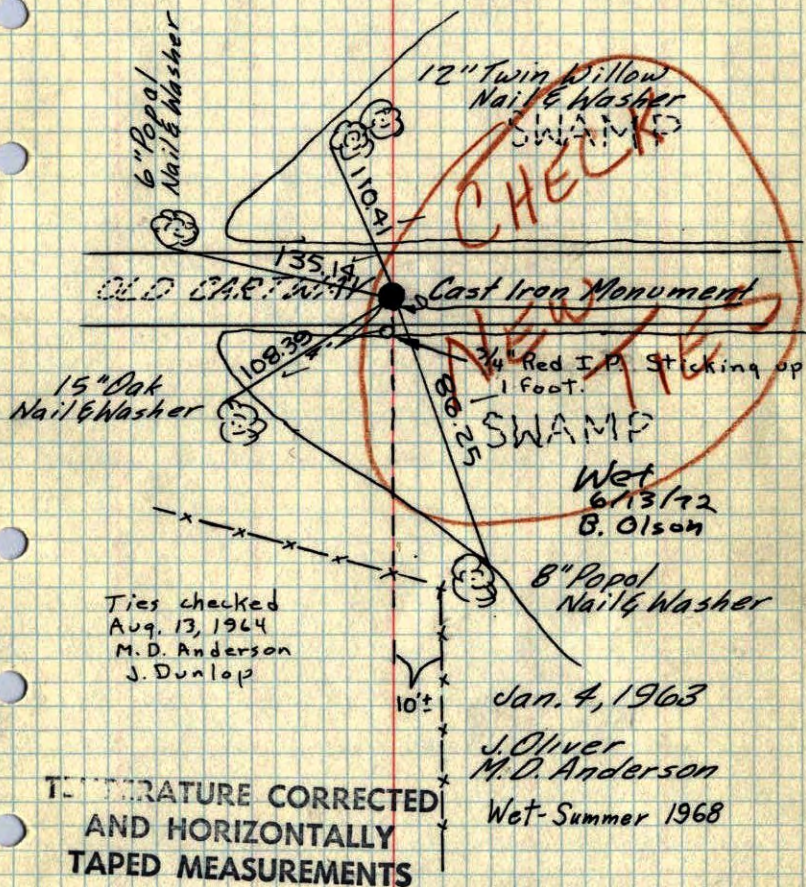 6" Popal
Nail & Washer
12" Twin Willow
Nail & Washer
SWAMP
CHECK
110.41
135.14
OLD CARTWAY
Cast Iron Monument
NEW
TIES
3/4" Red I.P. Sticking up
1 foot.
108.39
15" Oak
Nail & Washer
88.25
SWAMP
Wet
6/13/72
B. Olson
8" Popol
Nail & Washer
Ties checked
Aug. 13, 1964
M.D. Anderson
J. Dunlop
10'±
Jan. 4, 1963
J. Oliver
M.D. Anderson
Wet-Summer 1968
TEMPERATURE CORRECTED
AND HORIZONTALLY
TAPED MEASUREMENTS